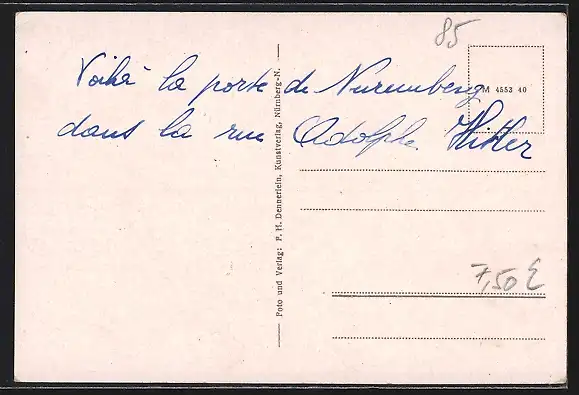 85
Voilà la porte de Nuremberg
M 4553 40
dans la rue Adolphe Hitler
Foto und Verlag: F. H. Dennerlein, Kunstverlag, Nürnberg-N.
7,50 €